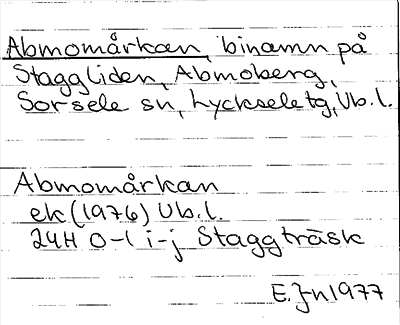 Abmomårkan, binamn på
Staggliden, Abmoberg,
Sorsele sn, Lycksele tg, Vb.l.
Abmomårkan
ek (1976) Vb.l.
24H 0-1 i-j Staggträsk
E. J-n 1977